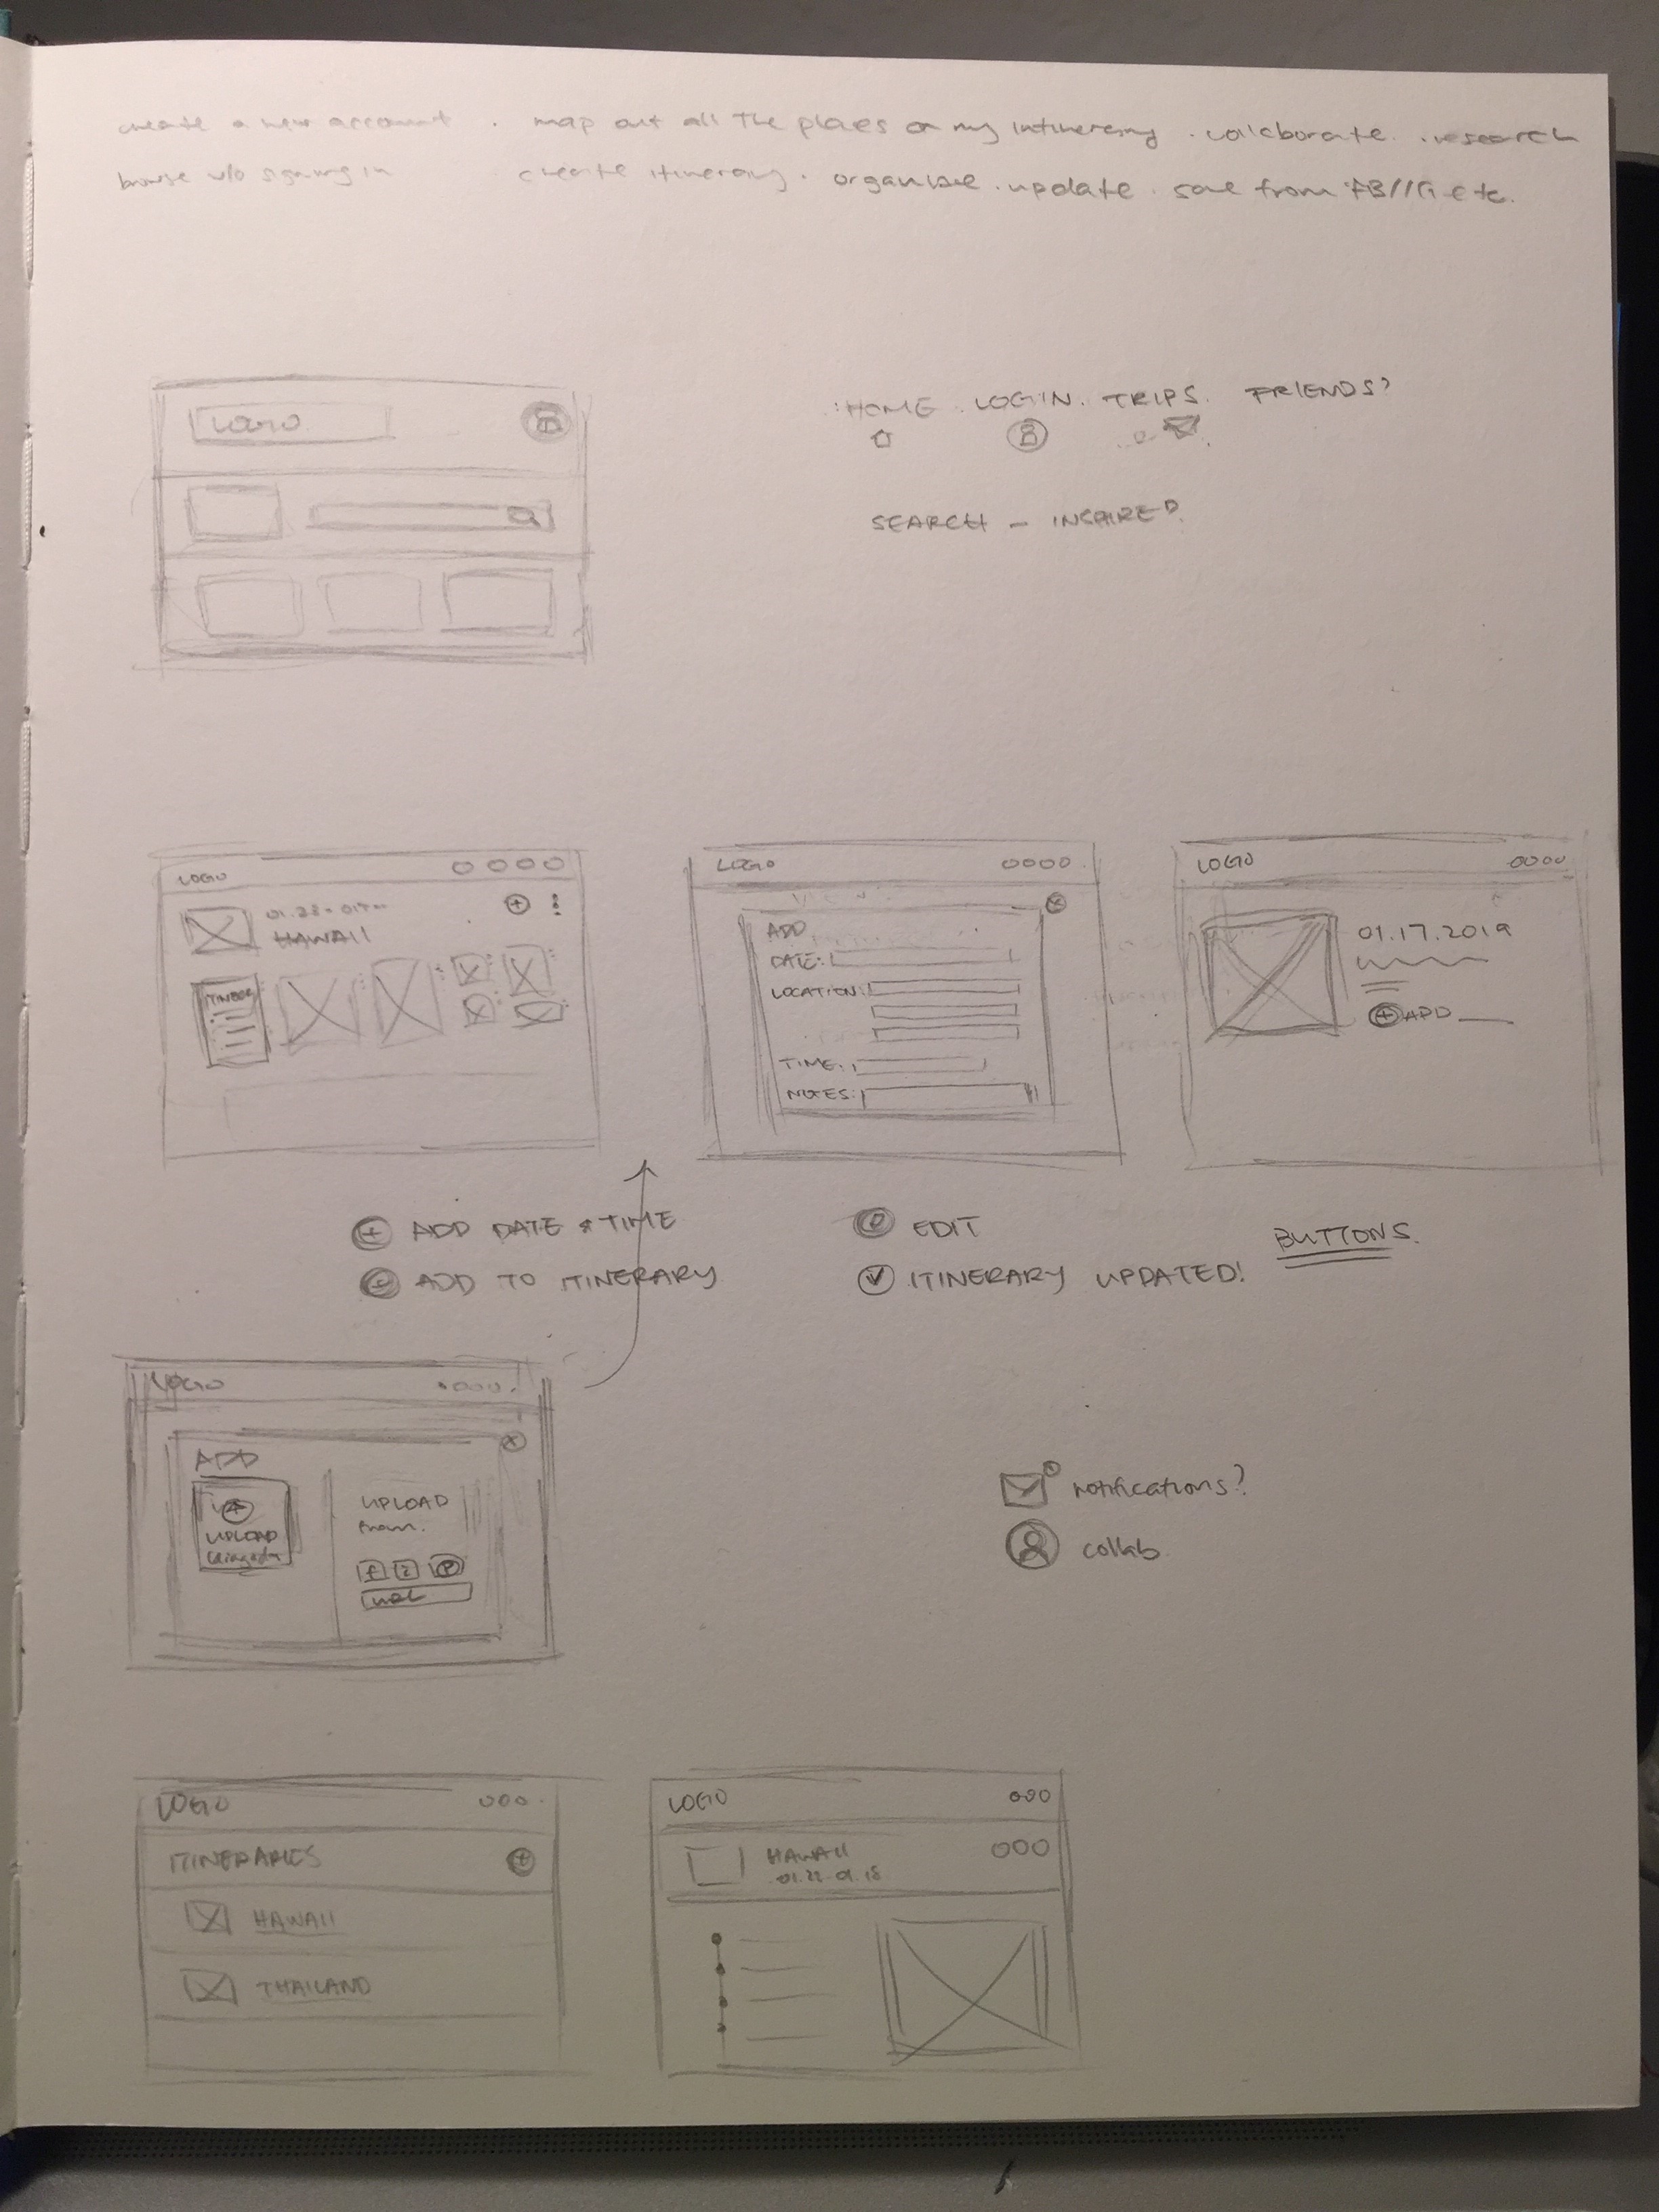 create a new account . map out all the places on my intinerary . collaborate . research
browse w/o signing in create itinerary . organize . update . save from FB/IG etc.
LOGO
HOME . LOGIN . TRIPS . FRIENDS?
SEARCH - INSPIRED
LOGO
HAWAII
LOGO
ADD
DATE:
LOCATION:
TIME:
NOTES:
LOGO
01.17.2019
ADD
ADD DATE & TIME
ADD TO ITINERARY
EDIT
ITINERARY UPDATED!
BUTTONS.
LOGO
ADD
UPLOAD
UPLOAD
from.
URL
notifications?
collab
LOGO
ITINERARIES
HAWAII
THAILAND
LOGO
HAWAII